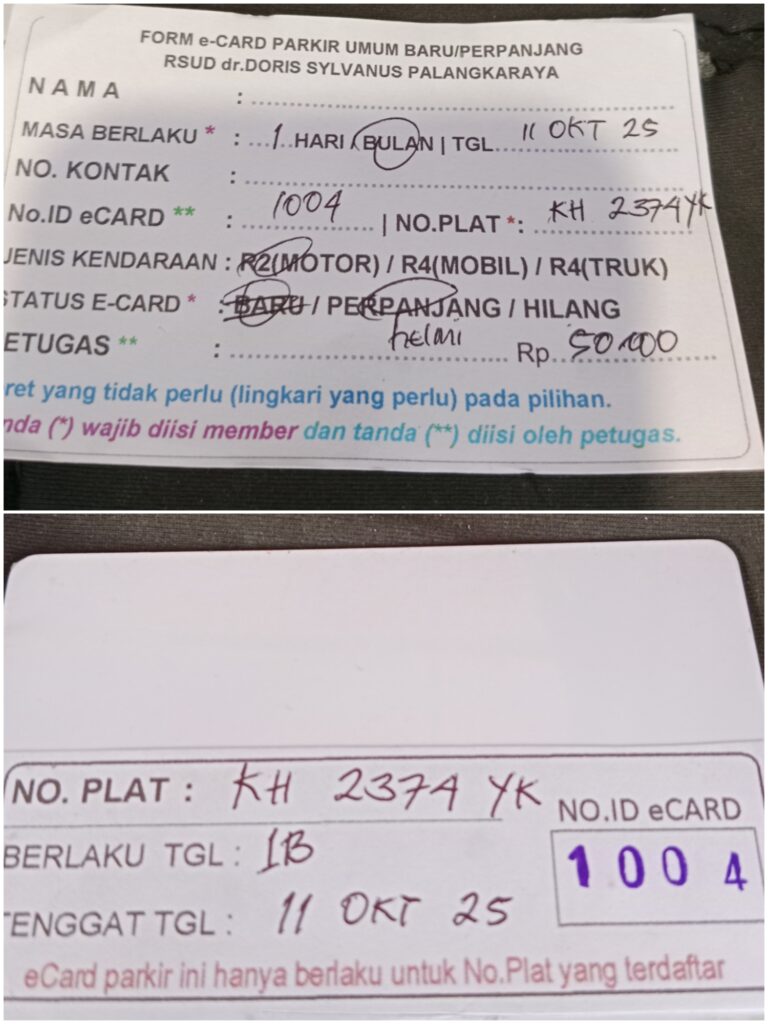 FORM e-CARD PARKIR UMUM BARU/PERPANJANG
RSUD dr.DORIS SYLVANUS PALANGKARAYA
NAMA :
MASA BERLAKU * : 1 HARI / BULAN | TGL 11 OKT 25
NO. KONTAK :
No.ID eCARD ** : 1004 | NO.PLAT *: KH 2374 YK
JENIS KENDARAAN : R2(MOTOR) / R4(MOBIL) / R4(TRUK)
STATUS E-CARD * : BARU / PERPANJANG / HILANG
ETUGAS ** : helmi Rp. 50.000
ret yang tidak perlu (lingkari yang perlu) pada pilihan.
nda (*) wajib diisi member dan tanda (**) diisi oleh petugas.
NO. PLAT : KH 2374 YK
NO.ID eCARD
BERLAKU TGL : 1B
1004
TENGGAT TGL : 11 OKT 25
eCard parkir ini hanya berlaku untuk No.Plat yang terdaftar